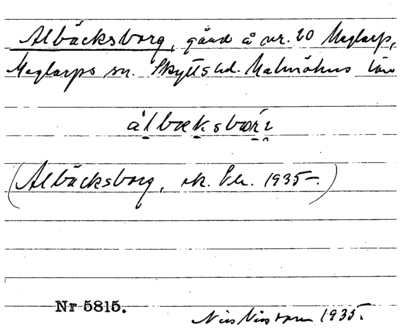 Albäcksborg, gård å nr. 20 Maglarp,
Maglarps sn. Skytts hd. Malmöhus län
(Albäcksborg, ek. 1935.)
Nr 5815.
Nils Nilsson 1935.